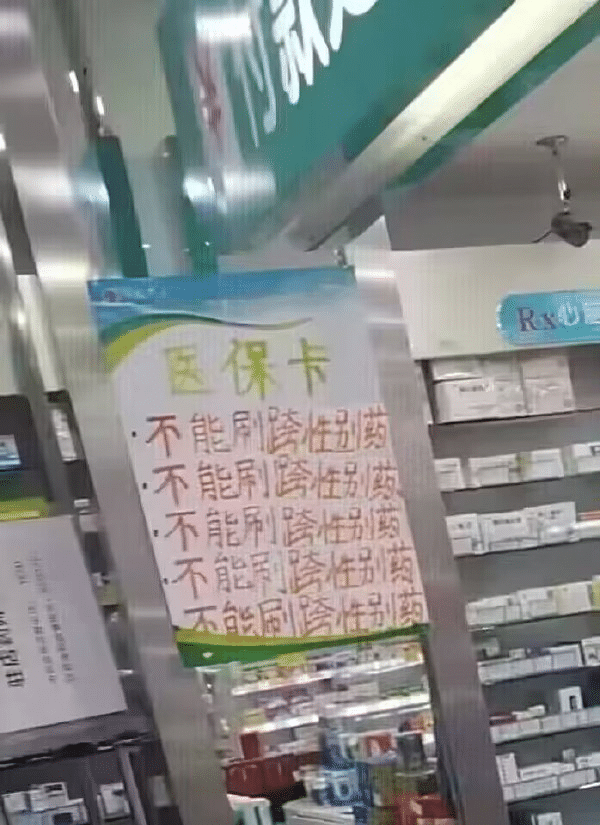 付就是
Rx心
医保卡
·不能刷跨性别药
·不能刷跨性别药
·不能刷跨性别药
·不能刷跨性别药
·不能刷跨性别药